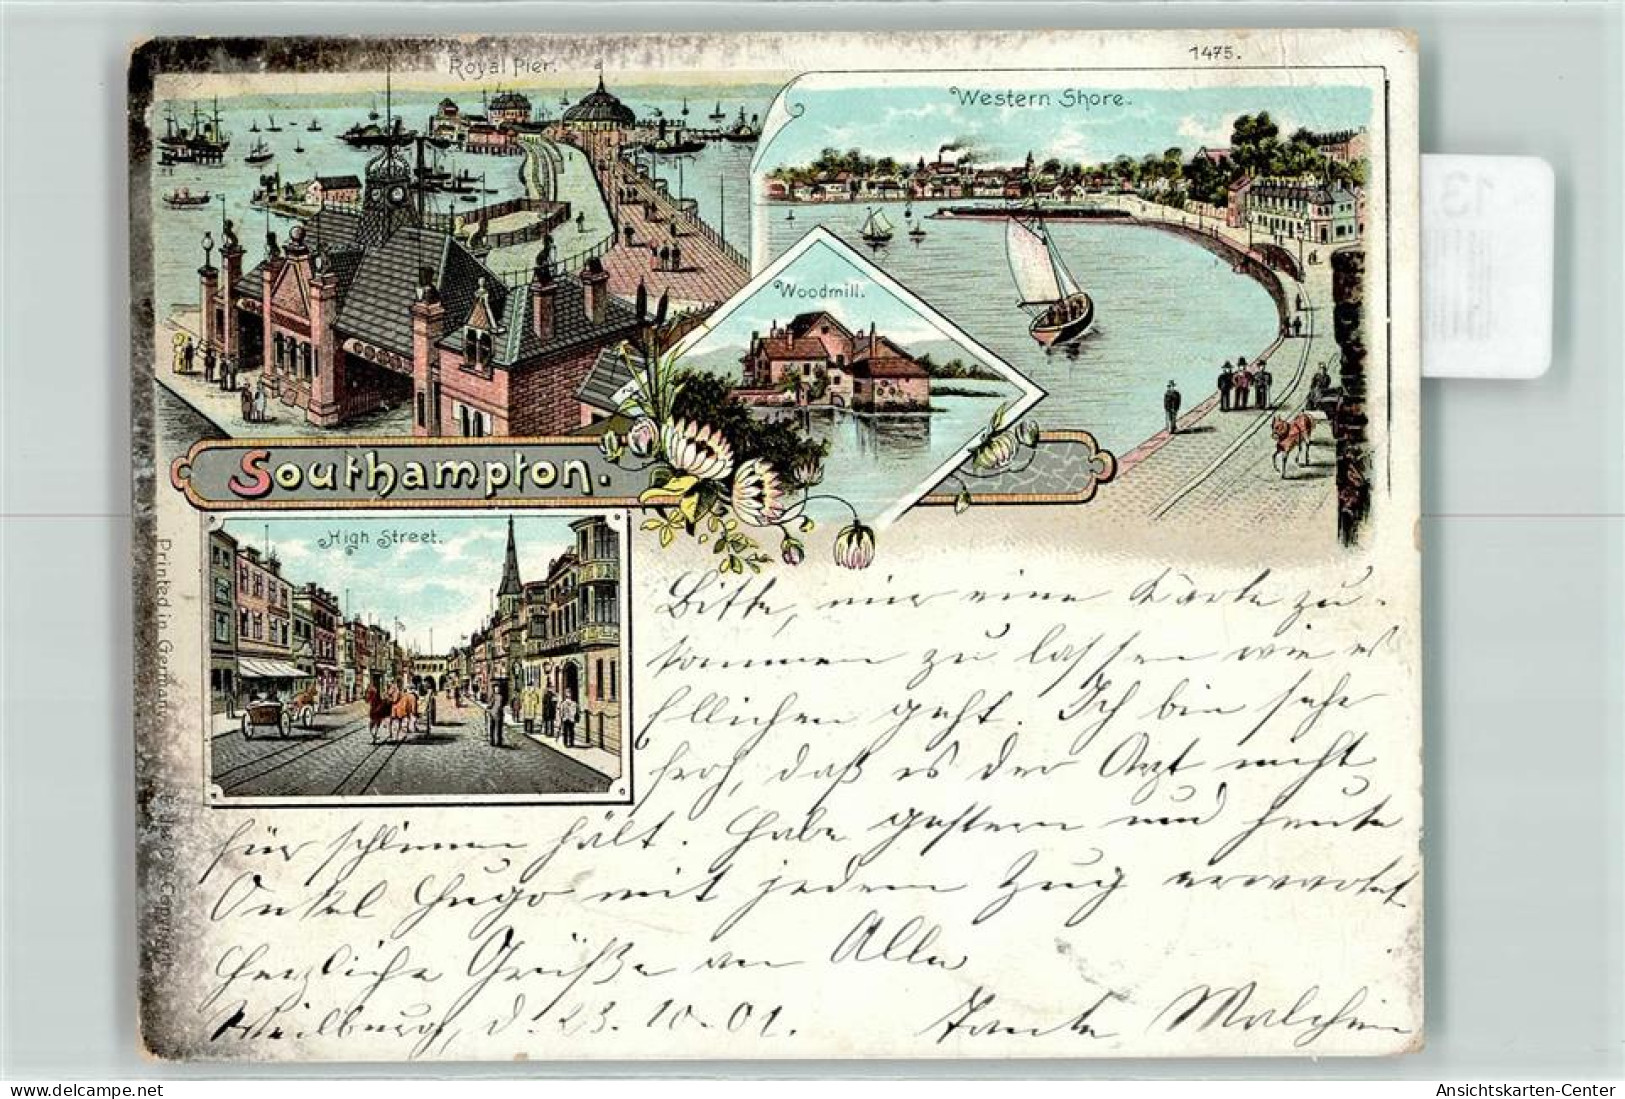 Royal Pier.
1475.
Western Shore.
Woodmill.
Southampton.
High Street.
Printed in Germany.
Copyright
Bitte, mir eine Karte zu-
kommen zu lassen wie es
Ellichen geht. Ich bin sehr
froh, daß es der Arzt nicht
für schlimm hält. Habe gestern und heute
Onkel Hugo mit jedem Zug erwartet
Herzliche Grüße an Alle
Weilburg, d. 23. 10. 01. Tante Malchen
delcampe.net
Ansichtskarten-Center